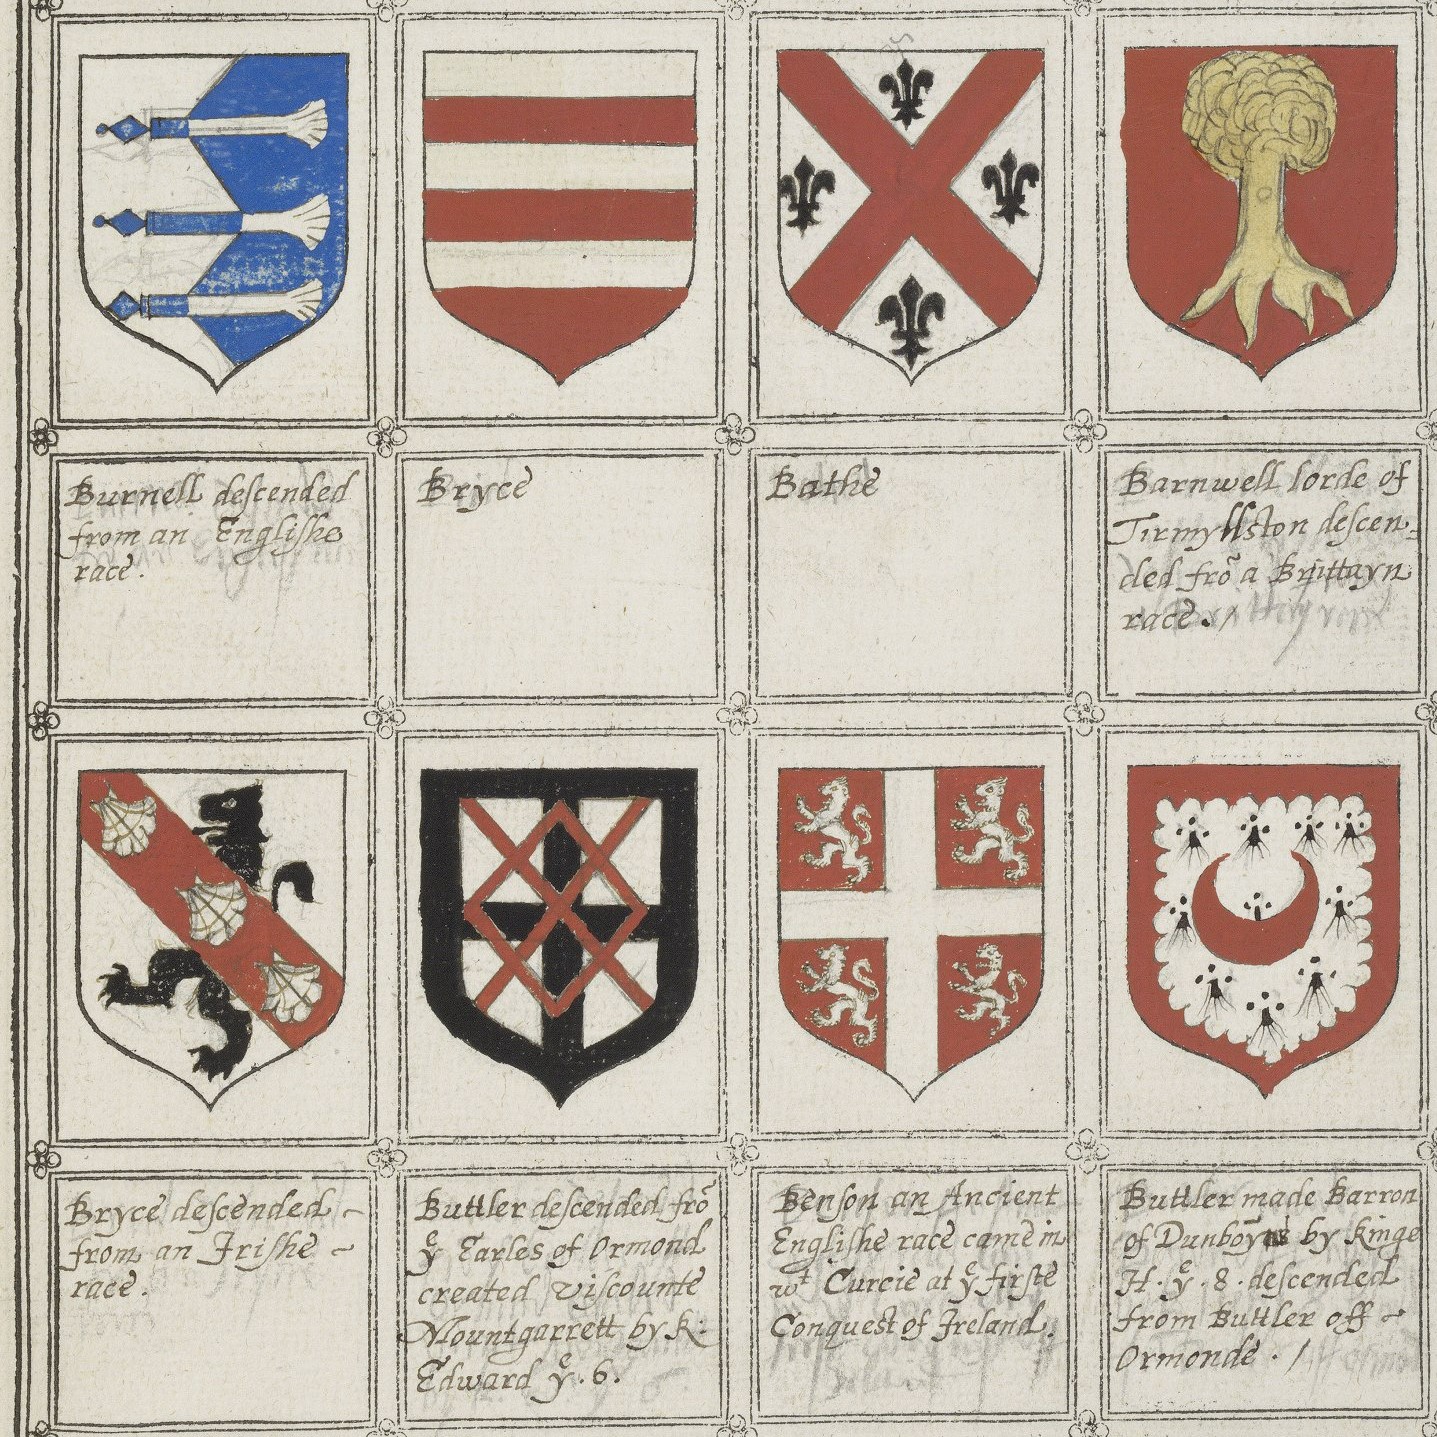 Burnell descended
from an Englishe
race.
Bryce
Bathe
Barnwell lorde of
Tirmyllston descen=
ded frõ a Brittayn
race./
Bryce descended -
from an Irishe -
race.
Buttler descended frõ
yͤ Earles of Ormond
created viscounte
Mountgarrett by K:
Edward yͤ.6.
Benson an Ancient
Englishe race came in
wᵗ Curcie at yͤ firste
Conquest of Ireland.
Buttler made Barron
of by kinge
H.yͤ.8.descended
from Buttler off -
Ormonde./